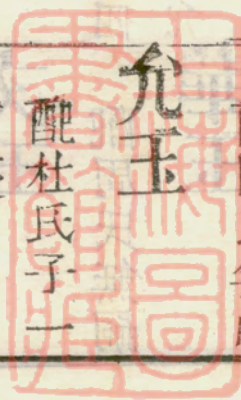 允玉
配杜氏子一